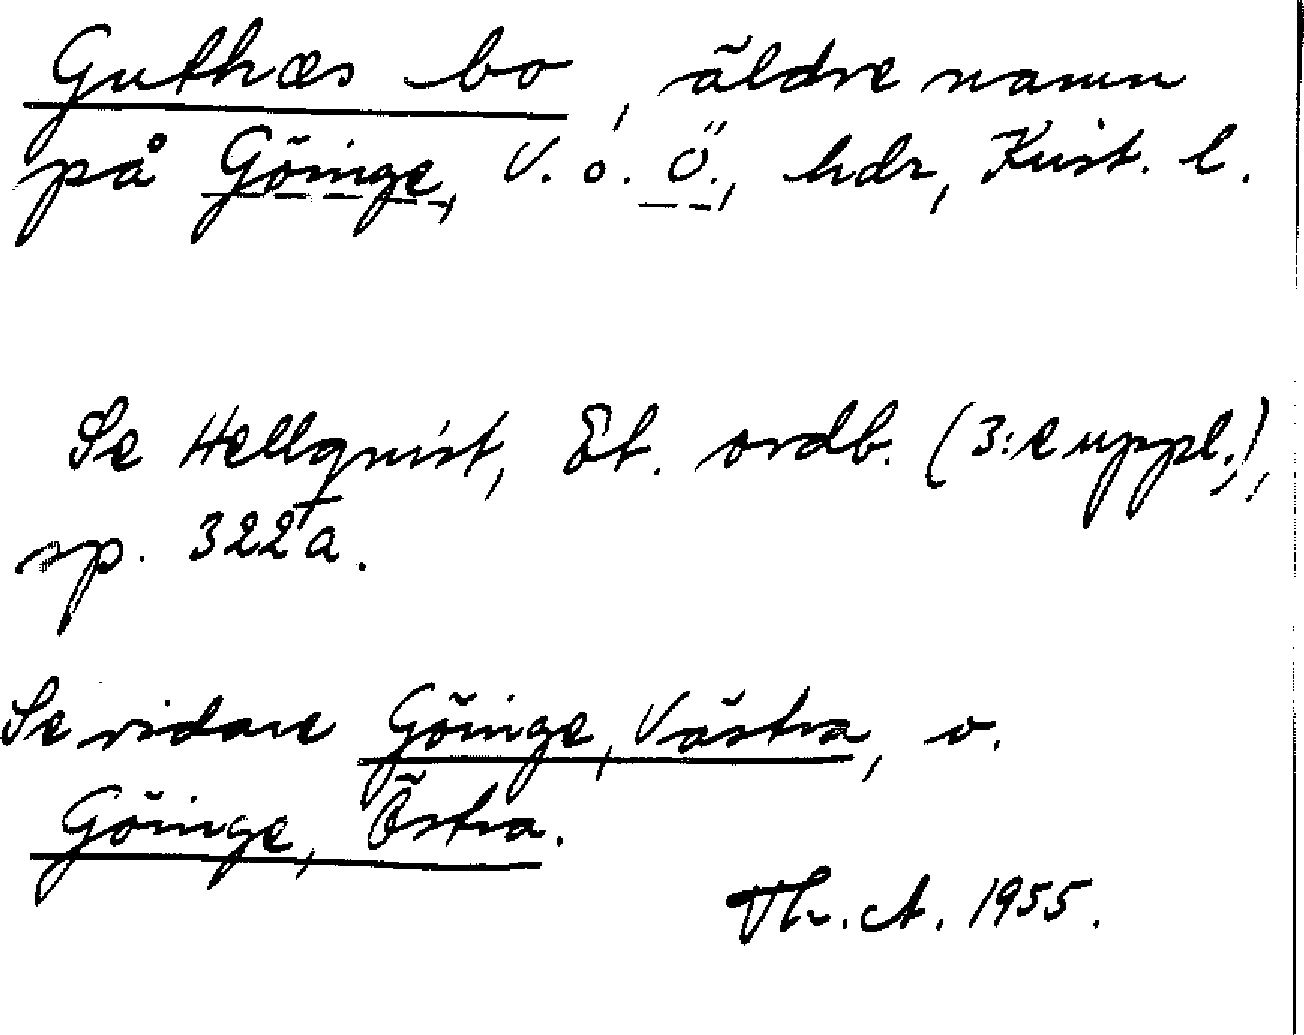 Guthæs bo, äldre namn
på Göinge, V. o. Ö., hdr, Krist. l.
Se Hellquist, Et. ordb. (3:e uppl.),
sp. 322 a.
Se vidare Göinge, Västra, o.
Göinge, Östra.
Th. A. 1955.